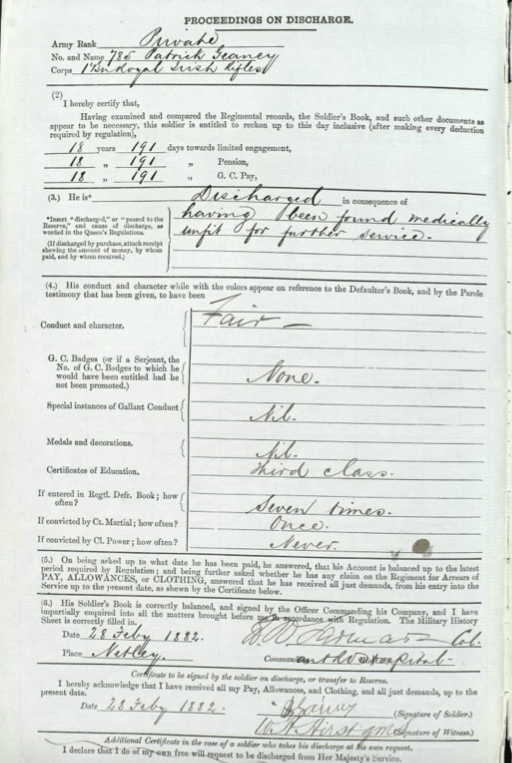 PROCEEDINGS ON DISCHARGE.
Army Rank Private
No. and Name 785 Patrick Geaney
Corps 1st Bn Royal Irish Rifles
(2)
I hereby certify that,
Having examined and compared the Regimental records, the Soldier's Book, and such other documents as
appear to be necessary, this soldier is entitled to reckon up to this day inclusive (after making every deduction
required by regulation),
18 years 191 days towards limited engagement,
18 " 191 " Pension,
18 " 191 " G. C. Pay,
(3.) He is* Discharged in consequence of
having been found medically
unfit for further service.
*Insert "discharged," or "passed to the
Reserve," and cause of discharge, as
worded in the Queen's Regulations.
(If discharged by purchase, attach receipt
shewing the amount of money, by whom
paid, and by whom received.)
(4.) His conduct and character while with the colors appear on reference to the Defaulter's Book, and by the Parole
testimony that has been given, to have been
Conduct and character. Fair —
G. C. Badges (or if a Serjeant, the
No. of G. C. Badges to which he
would have been entitled had he
not been promoted.) None.
Special instances of Gallant Conduct Nil.
Medals and decorations. Nil.
Certificates of Education. Third class.
If entered in Regtl. Defr. Book; how
often? Seven times.
If convicted by Ct. Martial; how often? Once.
If convicted by Cl. Power; how often? Never.
(5.) On being asked up to what date he has been paid, he answered, that his Account is balanced up to the latest
period required by Regulation; and being further asked whether he has any claim on the Regiment for Arrears of
PAY, ALLOWANCES, or CLOTHING, answered that he has received all just demands, from his entry into the
Service up to the present date, as shewn by the Certificate below.
(6.) His Soldier's Book is correctly balanced, and signed by the Officer Commanding his Company, and I have
impartially enquired into all the matters brought before me in accordance with Regulation. The Military History
Sheet is correctly filled in.
Date 28 Feby 1882. Col.
Place Netley. Hospital-
Certificate to be signed by the soldier on discharge, or transfer to Reserve.
I hereby acknowledge that I have received all my Pay, Allowances, and Clothing, and all just demands, up to the
present date.
Date 28 Feby 1882. (Signature of Soldier.)
(Signature of Witness.)
Additional Certificate in the case of a soldier who takes his discharge at his own request.
I declare that I do of my own free will request to be discharged from Her Majesty's Service.